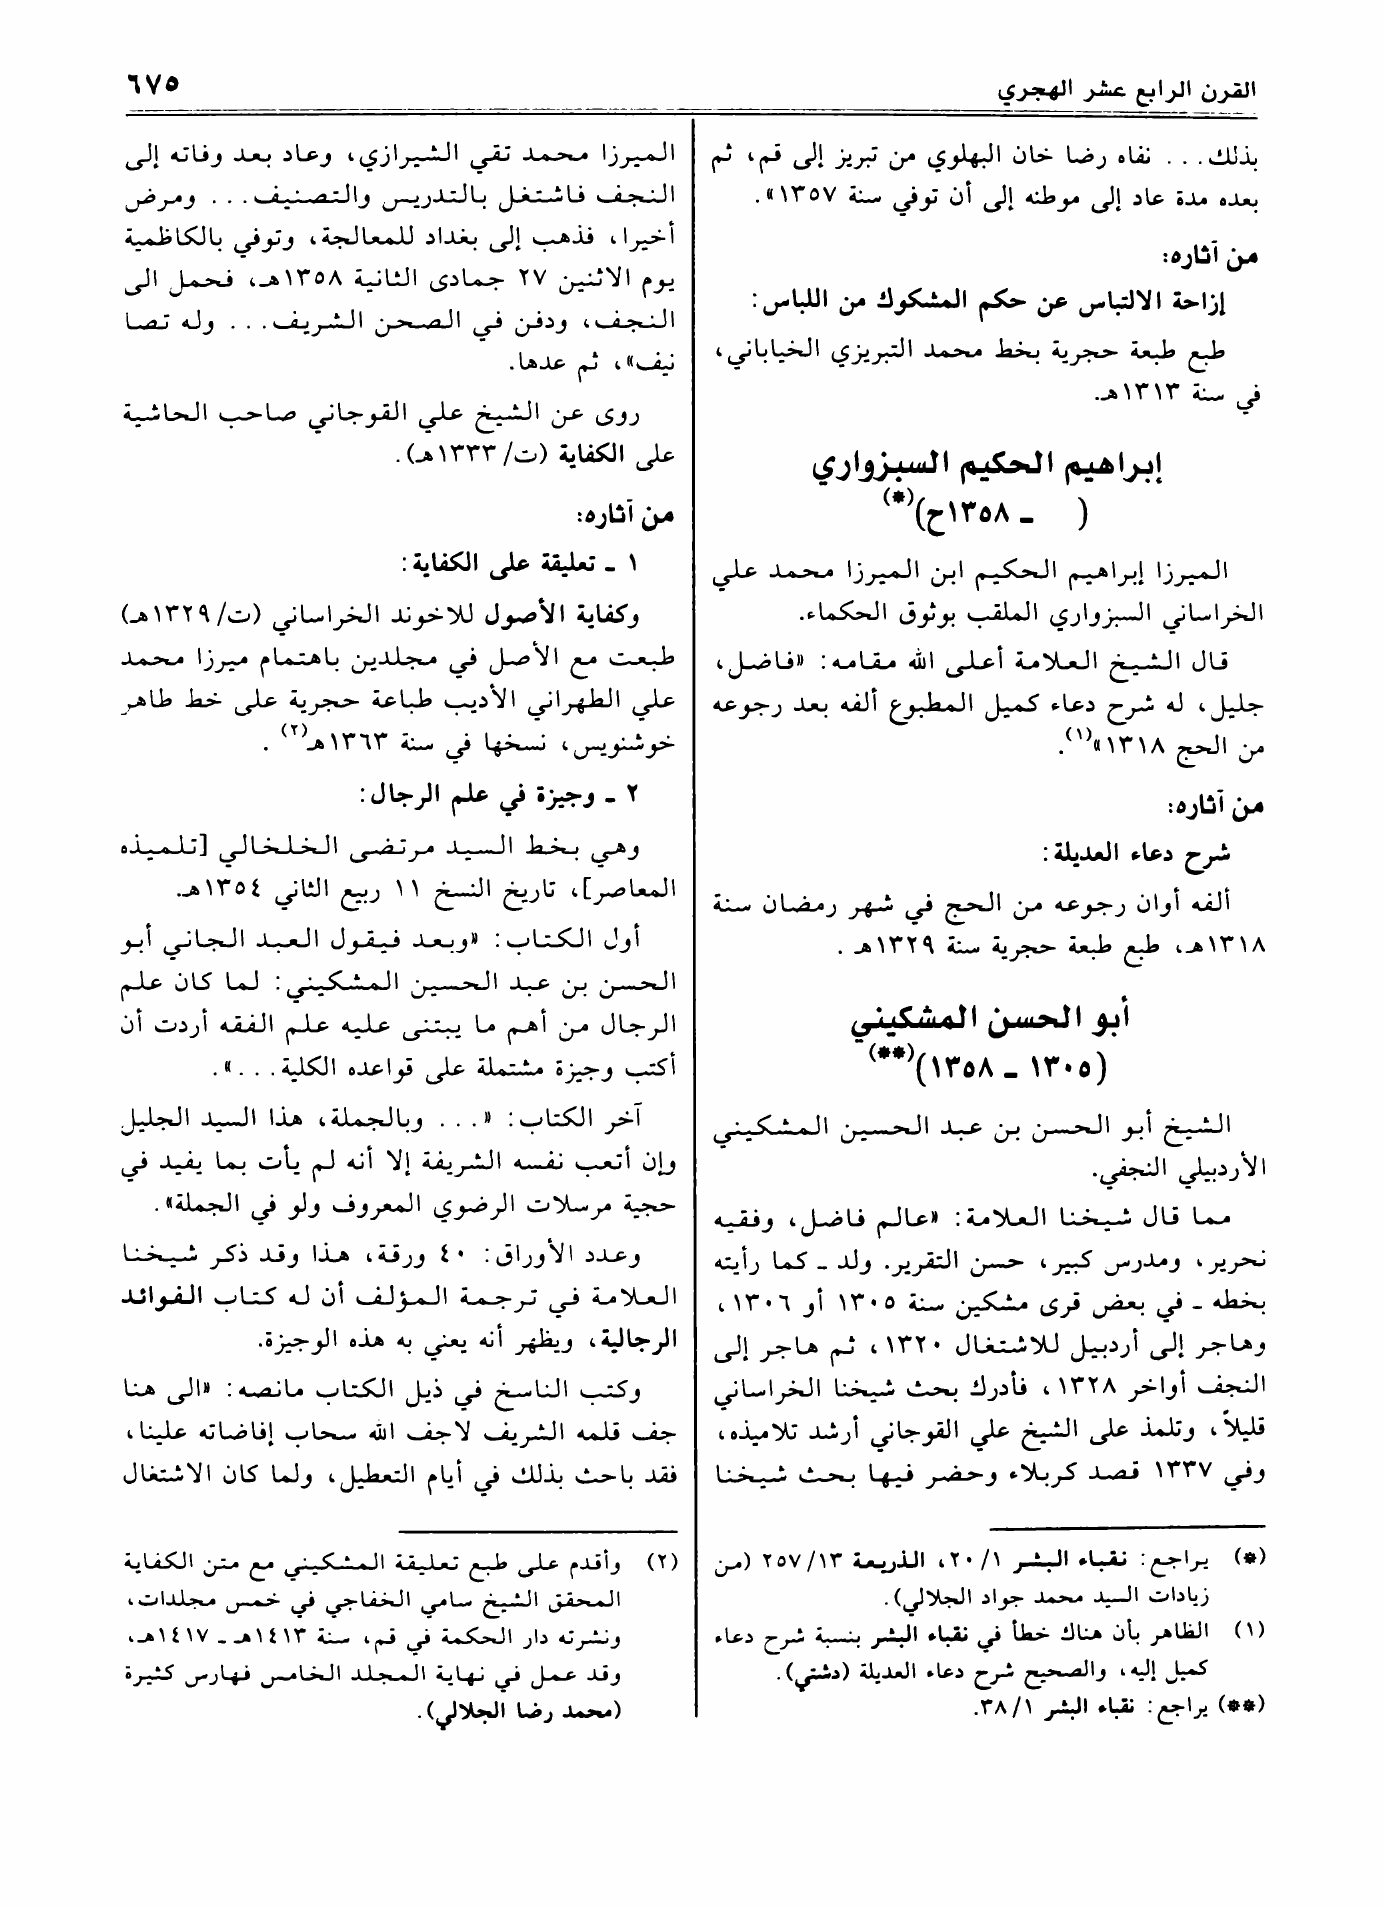 القرن الرابع عشر الهجري
٦٧٥
بذلك... نفاه رضا خان البهلوي من تبريز إلى قم، ثم
بعده مدة عاد إلى موطنه إلى أن توفي سنة ١٣٥٧».
من آثاره:
إزاحة الالتباس عن حكم المشكوك من اللباس:
طبع طبعة حجرية بخط محمد التبريزي الخياباني،
في سنة ١٣١٣هـ.
إبراهيم الحكيم السبزواري
( ـ ١٣٥٨ح)(*)
الميرزا إبراهيم الحكيم ابن الميرزا محمد علي
الخراساني السبزواري الملقب بوثوق الحكماء.
قال الشيخ العلامة أعلى الله مقامه: «فاضل،
جليل، له شرح دعاء كميل المطبوع ألفه بعد رجوعه
من الحج ١٣١٨»(١).
من آثاره:
شرح دعاء العديلة:
ألفه أوان رجوعه من الحج في شهر رمضان سنة
١٣١٨هـ، طبع طبعة حجرية سنة ١٣٢٩هـ .
أبو الحسن المشكيني
(١٣٠٥ ـ ١٣٥٨)(**)
الشيخ أبو الحسن بن عبد الحسين المشكيني
الأردبيلي النجفي.
مما قال شيخنا العلامة: «عالم فاضل، وفقيه
نحرير، ومدرس كبير، حسن التقرير. ولد ـ كما رأيته
بخطه ـ في بعض قرى مشكين سنة ١٣٠٥ أو ١٣٠٦،
وهاجر إلى أردبيل للاشتغال ١٣٢٠، ثم هاجر إلى
النجف أواخر ١٣٢٨، فأدرك بحث شيخنا الخراساني
قليلاً، وتلمذ على الشيخ علي القوجاني أرشد تلاميذه،
وفي ١٣٣٧ قصد كربلاء وحضر فيها بحث شيخنا
(*) يراجع: نقباء البشر ٢٠/١، الذريعة ٢٥٧/١٣ (من
زيادات السيد محمد جواد الجلالي).
(١) الظاهر بأن هناك خطأ في نقباء البشر بنسبة شرح دعاء
كميل إليه، والصحيح شرح دعاء العديلة (دشتي).
(**) يراجع: نقباء البشر ٣٨/١.
الميرزا محمد تقي الشيرازي، وعاد بعد وفاته إلى
النجف فاشتغل بالتدريس والتصنيف... ومرض
أخيرا، فذهب إلى بغداد للمعالجة، وتوفي بالكاظمية
يوم الاثنين ٢٧ جمادى الثانية ١٣٥٨هـ، فحمل الى
النجف، ودفن في الصحن الشريف... وله تصا
نيف»، ثم عدها.
روى عن الشيخ علي القوجاني صاحب الحاشية
على الكفاية (ت/١٣٣٣هـ).
من آثاره:
١ ـ تعليقة على الكفاية:
وكفاية الأصول للاخوند الخراساني (ت/١٣٢٩هـ)
طبعت مع الأصل في مجلدين باهتمام ميرزا محمد
علي الطهراني الأديب طباعة حجرية على خط طاهر
خوشنويس، نسخها في سنة ١٣٦٣هـ(٢) .
٢ ـ وجيزة في علم الرجال:
وهي بخط السيد مرتضى الخلخالي [تلميذه
المعاصر]، تاريخ النسخ ١١ ربيع الثاني ١٣٥٤هـ.
أول الكتاب: «وبعد فيقول العبد الجاني أبو
الحسن بن عبد الحسين المشكيني: لما كان علم
الرجال من أهم ما يبتنى عليه علم الفقه أردت أن
أكتب وجيزة مشتملة على قواعده الكلية...».
آخر الكتاب: «... وبالجملة، هذا السيد الجليل
وإن أتعب نفسه الشريفة إلا أنه لم يأت بما يفيد في
حجية مرسلات الرضوي المعروف ولو في الجملة».
وعدد الأوراق: ٤٠ ورقة، هذا وقد ذكر شيخنا
العلامة في ترجمة المؤلف أن له كتاب الفوائد
الرجالية، ويظهر أنه يعني به هذه الوجيزة.
وكتب الناسخ في ذيل الكتاب مانصه: «الى هنا
جف قلمه الشريف لاجف الله سحاب إفاضاته علينا،
فقد باحث بذلك في أيام التعطيل، ولما كان الاشتغال
(٢) وأقدم على طبع تعليقة المشكيني مع متن الكفاية
المحقق الشيخ سامي الخفاجي في خمس مجلدات،
ونشرته دار الحكمة في قم، سنة ١٤١٣هـ ـ ١٤١٧هـ،
وقد عمل في نهاية المجلد الخامس فهارس كثيرة
(محمد رضا الجلالي).